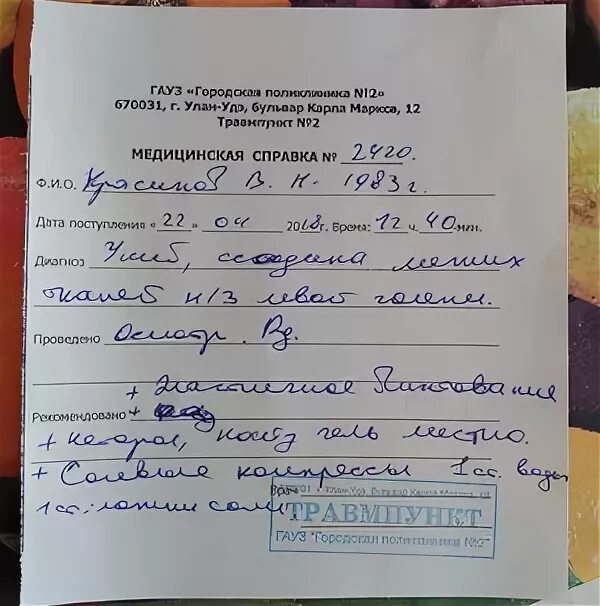 ГАУЗ «Городская поликлиника №2»
670031, г. Улан-Удэ, бульвар Карла Маркса, 12
Травмпункт №2
МЕДИЦИНСКАЯ СПРАВКА № 2420.
Ф.И.О. В. Н. 1983 г.
Дата поступления « 22 » 04 2018г. Время: 12 ч. 40 мин.
Диагноз Ушиб, ссадина мягких
тканей н/3 левой голени.
Проведено Осмотр. Rg.
+ Эластичное бинтование
Рекомендовано +
+ гель местно.
+ Солевые компрессы 1 ст. воды
1 ст. ложки соли
Врач
ул. Улан-Удэ, бульвар Карла Маркса, 12
ТРАВМПУНКТ
ГАУЗ "Городская поликлиника №2"